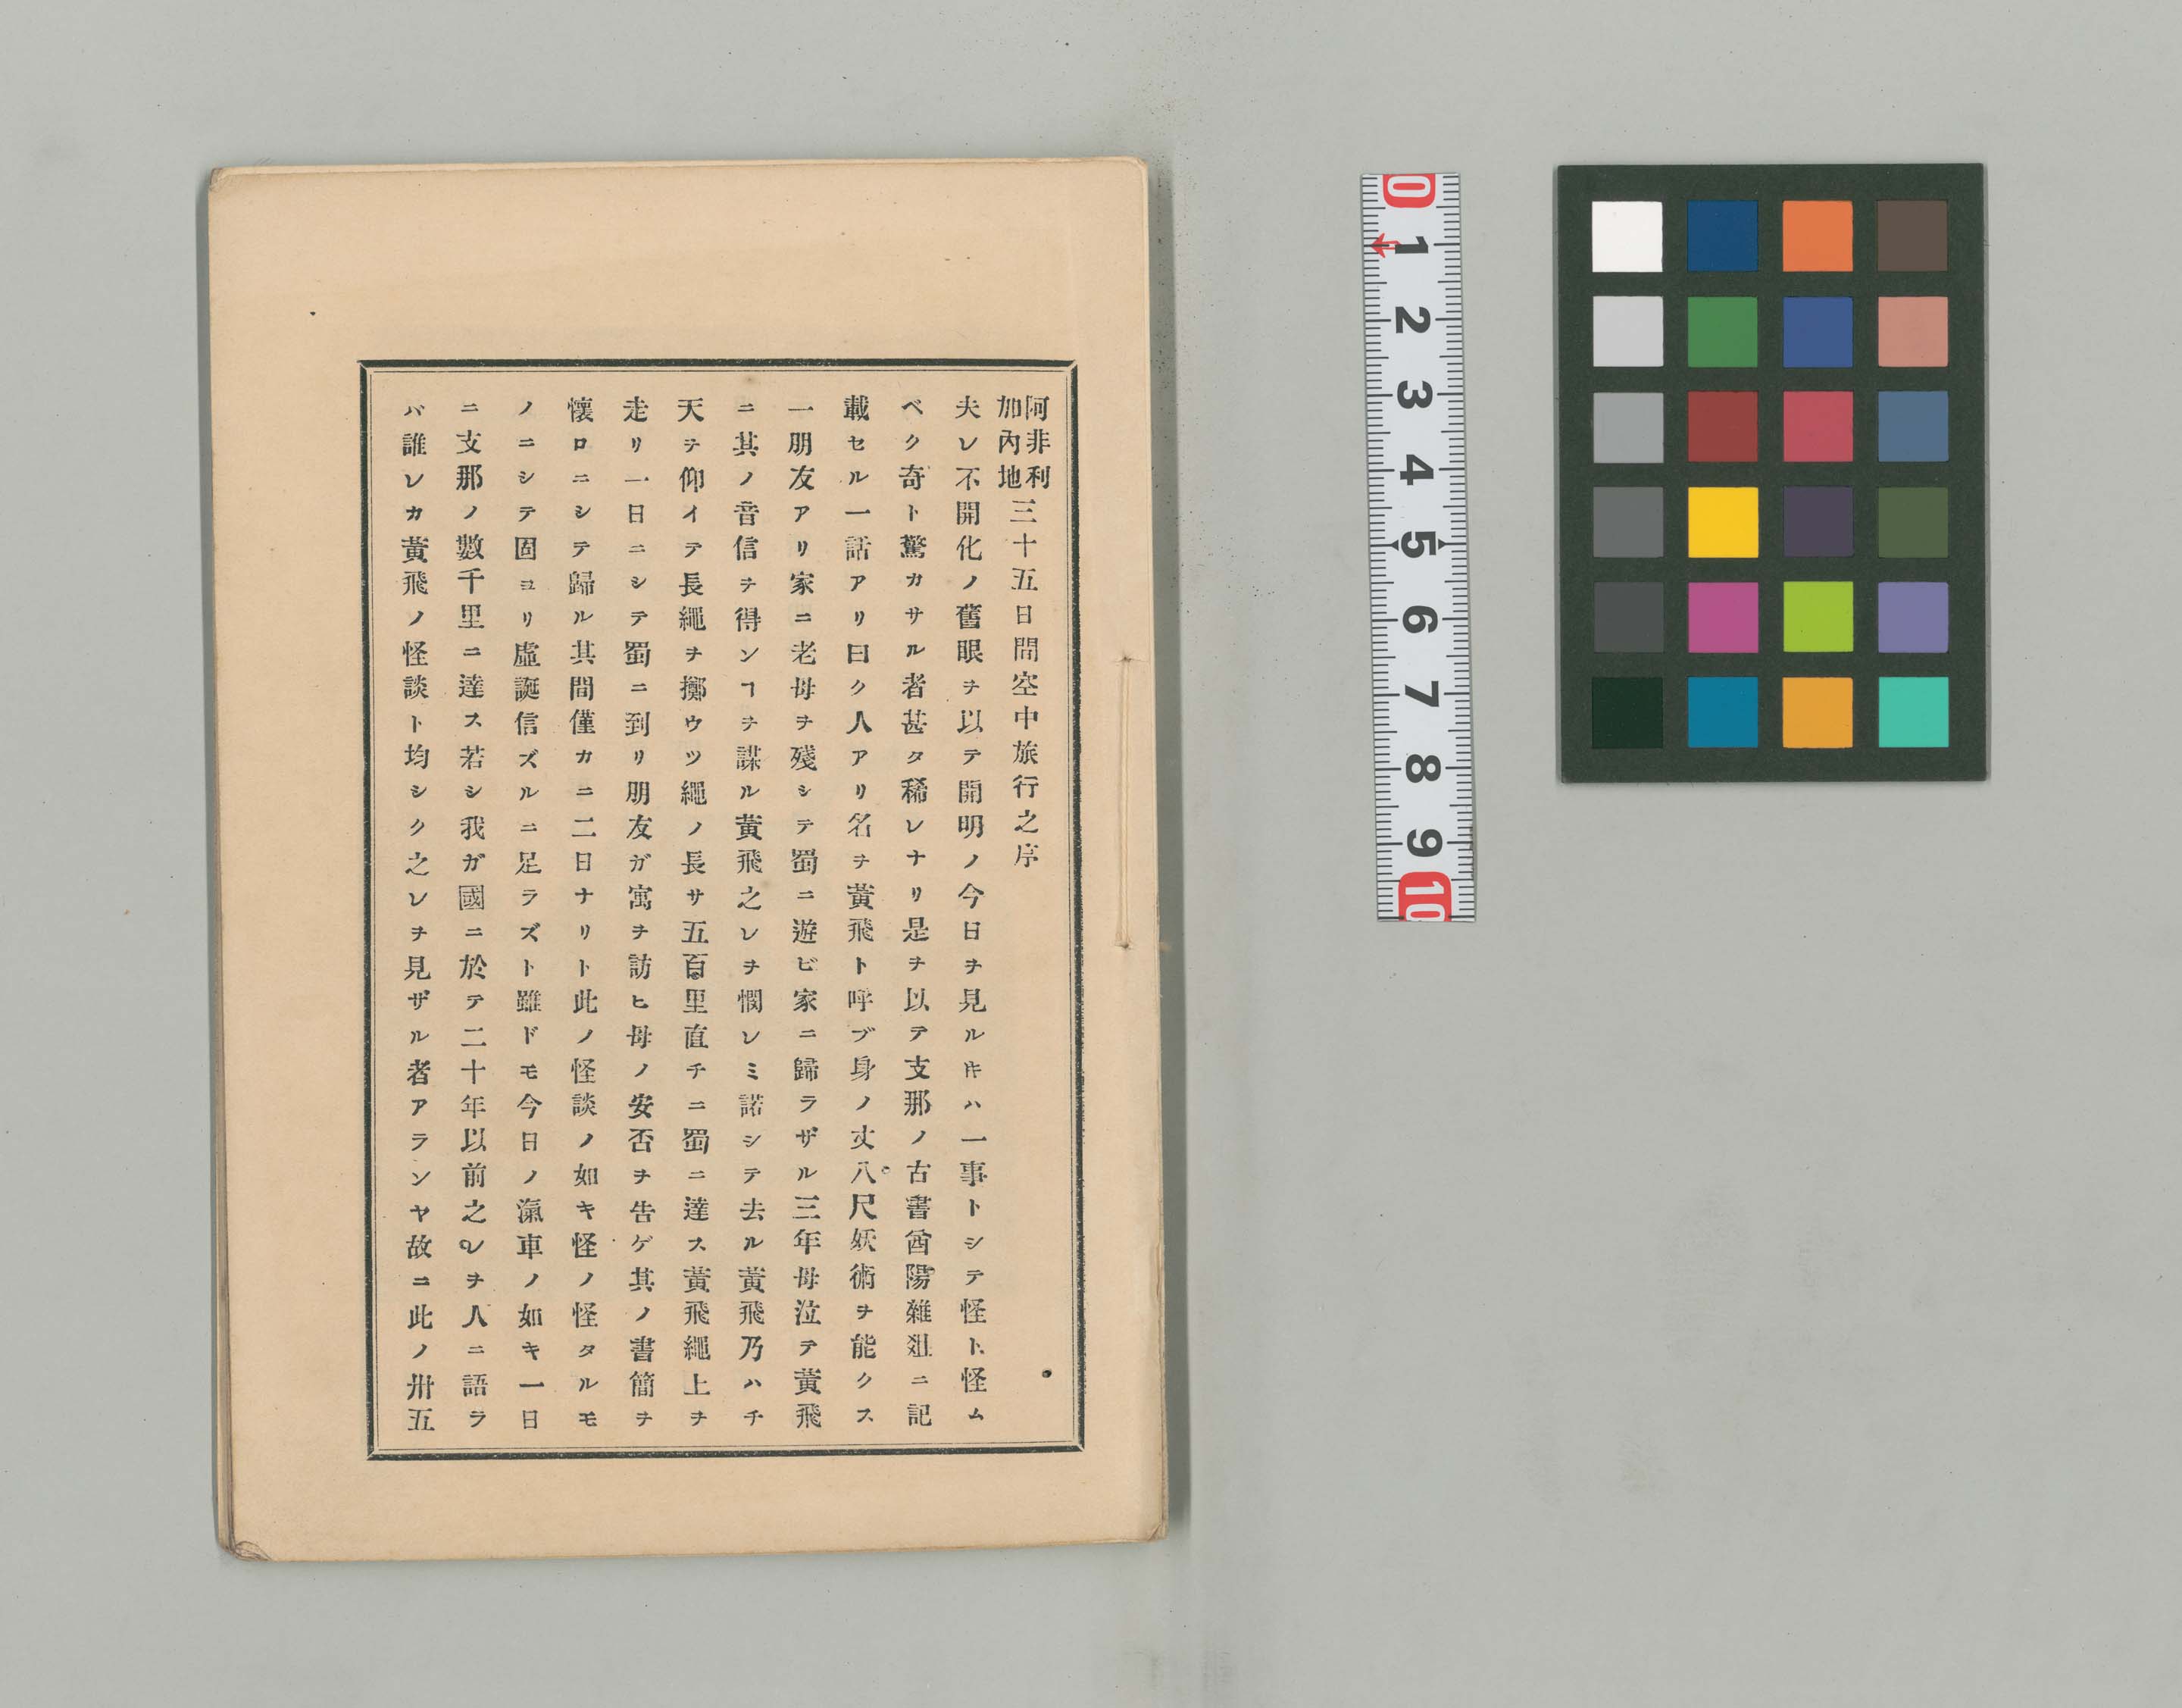 阿非利加內地三十五日間空中旅行之序
夫レ不開化ノ舊眼ヲ以テ開明ノ今日ヲ見ルキハ一事トシテ怪ト怪ム
ベク奇ト驚カサル者甚タ稀レナリ是ヲ以テ支那ノ古書酋陽雜爼ニ記
載セル一話アリ曰ク人アリ名ヲ黃飛ト呼ブ身ノ丈八尺妖術ヲ能クス
一朋友アリ家ニ老母ヲ殘シテ蜀ニ遊ビ家ニ歸ラザル三年母泣テ黃飛
ニ其ノ音信ヲ得ンヿヲ謀ル黃飛之レヲ憫レミ諾シテ去ル黃飛乃ハチ
天ヲ仰イテ長繩ヲ擲ウツ繩ノ長サ五百里直チニ蜀ニ達ス黃飛繩上ヲ
走リ一日ニシテ蜀ニ到リ朋友ガ寓ヲ訪ヒ母ノ安否ヲ告ゲ其ノ書簡ヲ
懷ロニシテ歸ル其間僅カニ二日ナリト此ノ怪談ノ如キ怪ノ怪タルモ
ノニシテ固ヨリ虛誕信ズルニ足ラズト雖ドモ今日ノ滊車ノ如キ一日
ニ支那ノ數千里ニ達ス若シ我ガ國ニ於テ二十年以前之レヲ人ニ語ラ
バ誰レカ黃飛ノ怪談ト均シク之レヲ見ザル者アランヤ故ニ此ノ卅五
0 1 2 3 4 5 6 7 8 9 10